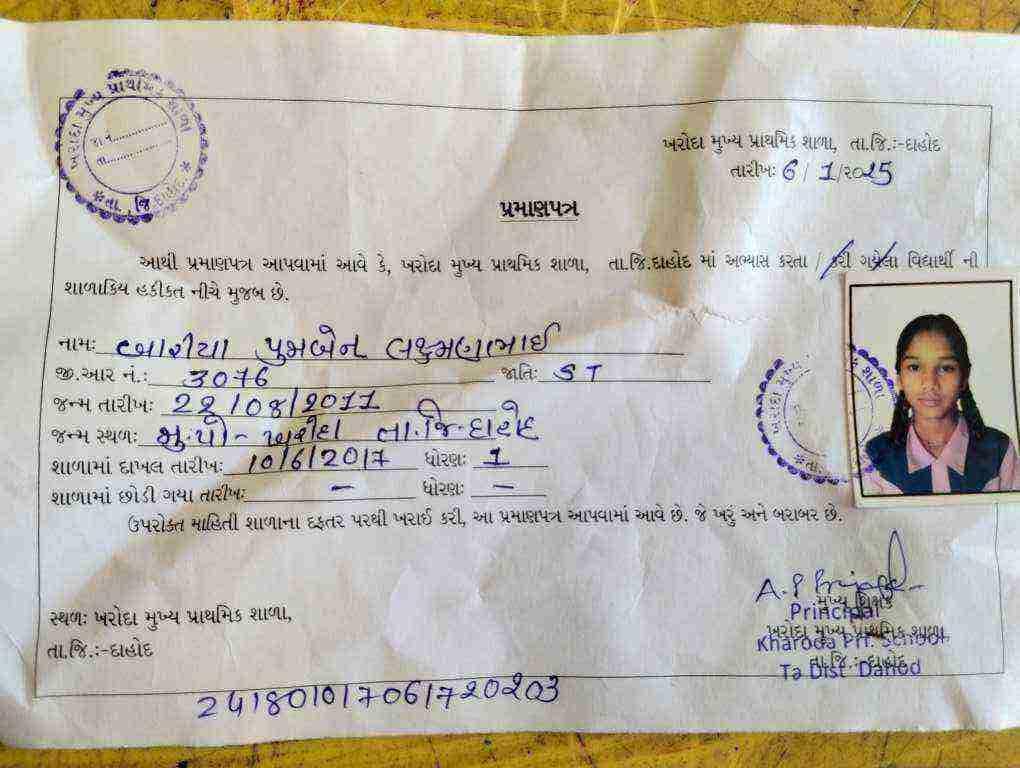 ખરોદા મુખ્ય પ્રાથમિક શાળા
તા. જિ. દાહોદ
જા નં.
તા.
ખરોદા મુખ્ય પ્રાથમિક શાળા, તા.જિ.:-દાહોદ
તારીખઃ 6/1/૨૦25
પ્રમાણપત્ર
આથી પ્રમાણપત્ર આપવામાં આવે કે, ખરોદા મુખ્ય પ્રાથમિક શાળા, તા.જિ.દાહોદ માં અભ્યાસ કરતા / કરી ગયેલા વિદ્યાર્થી ની
શાળાકિય હકીકત નીચે મુજબ છે.
નામઃ બારીયા પુમબેન લક્ષ્મણભાઈ
જી.આર નં.: 3076 જાતિઃ ST
જન્મ તારીખઃ 22/08/2011
જન્મ સ્થળઃ મુ.પો- ખરોદા તા.જિ-દાહોદ
શાળામાં દાખલ તારીખઃ 10/6/2017 ધોરણઃ 1
શાળામાં છોડી ગયા તારીખઃ - ધોરણઃ -
ઉપરોક્ત માહિતી શાળાના દફતર પરથી ખરાઈ કરી, આ પ્રમાણપત્ર આપવામાં આવે છે. જે ખરું અને બરાબર છે.
ખરોદા મુખ્ય
શાળા
તા.
A.P
મુખ્ય શિક્ષક
Principal
ખરોદા મુખ્ય પ્રાથમિક શાળા,
Kharoda Pri. School
તા.જિ.:-દાહોદ
Ta Dist Dahod
સ્થળઃ ખરોદા મુખ્ય પ્રાથમિક શાળા,
તા.જિ.:-દાહોદ
241801017061720203